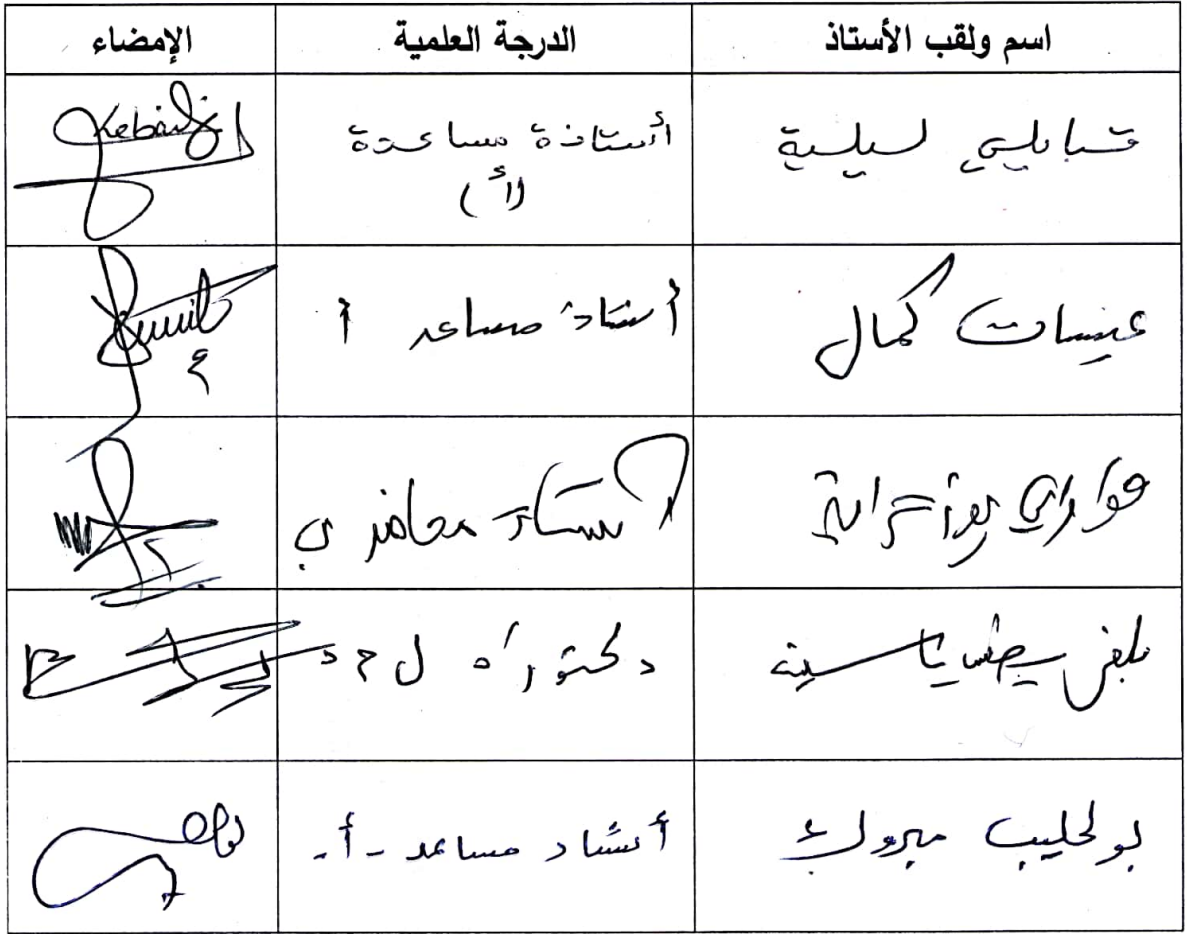 اسم ولقب الأستاذ الدرجة العلمية الإمضاء
قبايلي ليلية أستاذة مساعدة Kebaili
(أ)
عيسات كمال أستاذ مساعد أ
أستاذ محاضر ب
ياسينة دكتوراه ل م د
بولحليب مبروك أستاذ مساعد - أ -